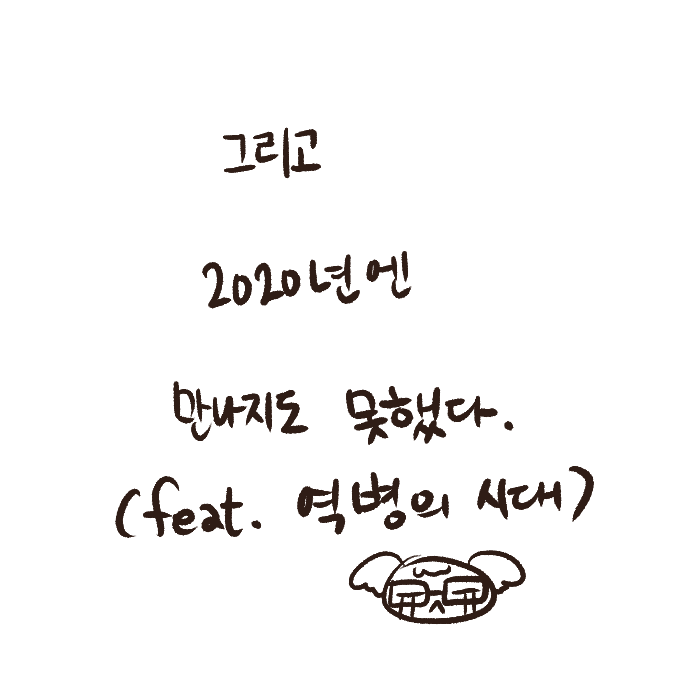 그리고
2020년엔
만나지도 못했다.
(feat. 역병의 시대)